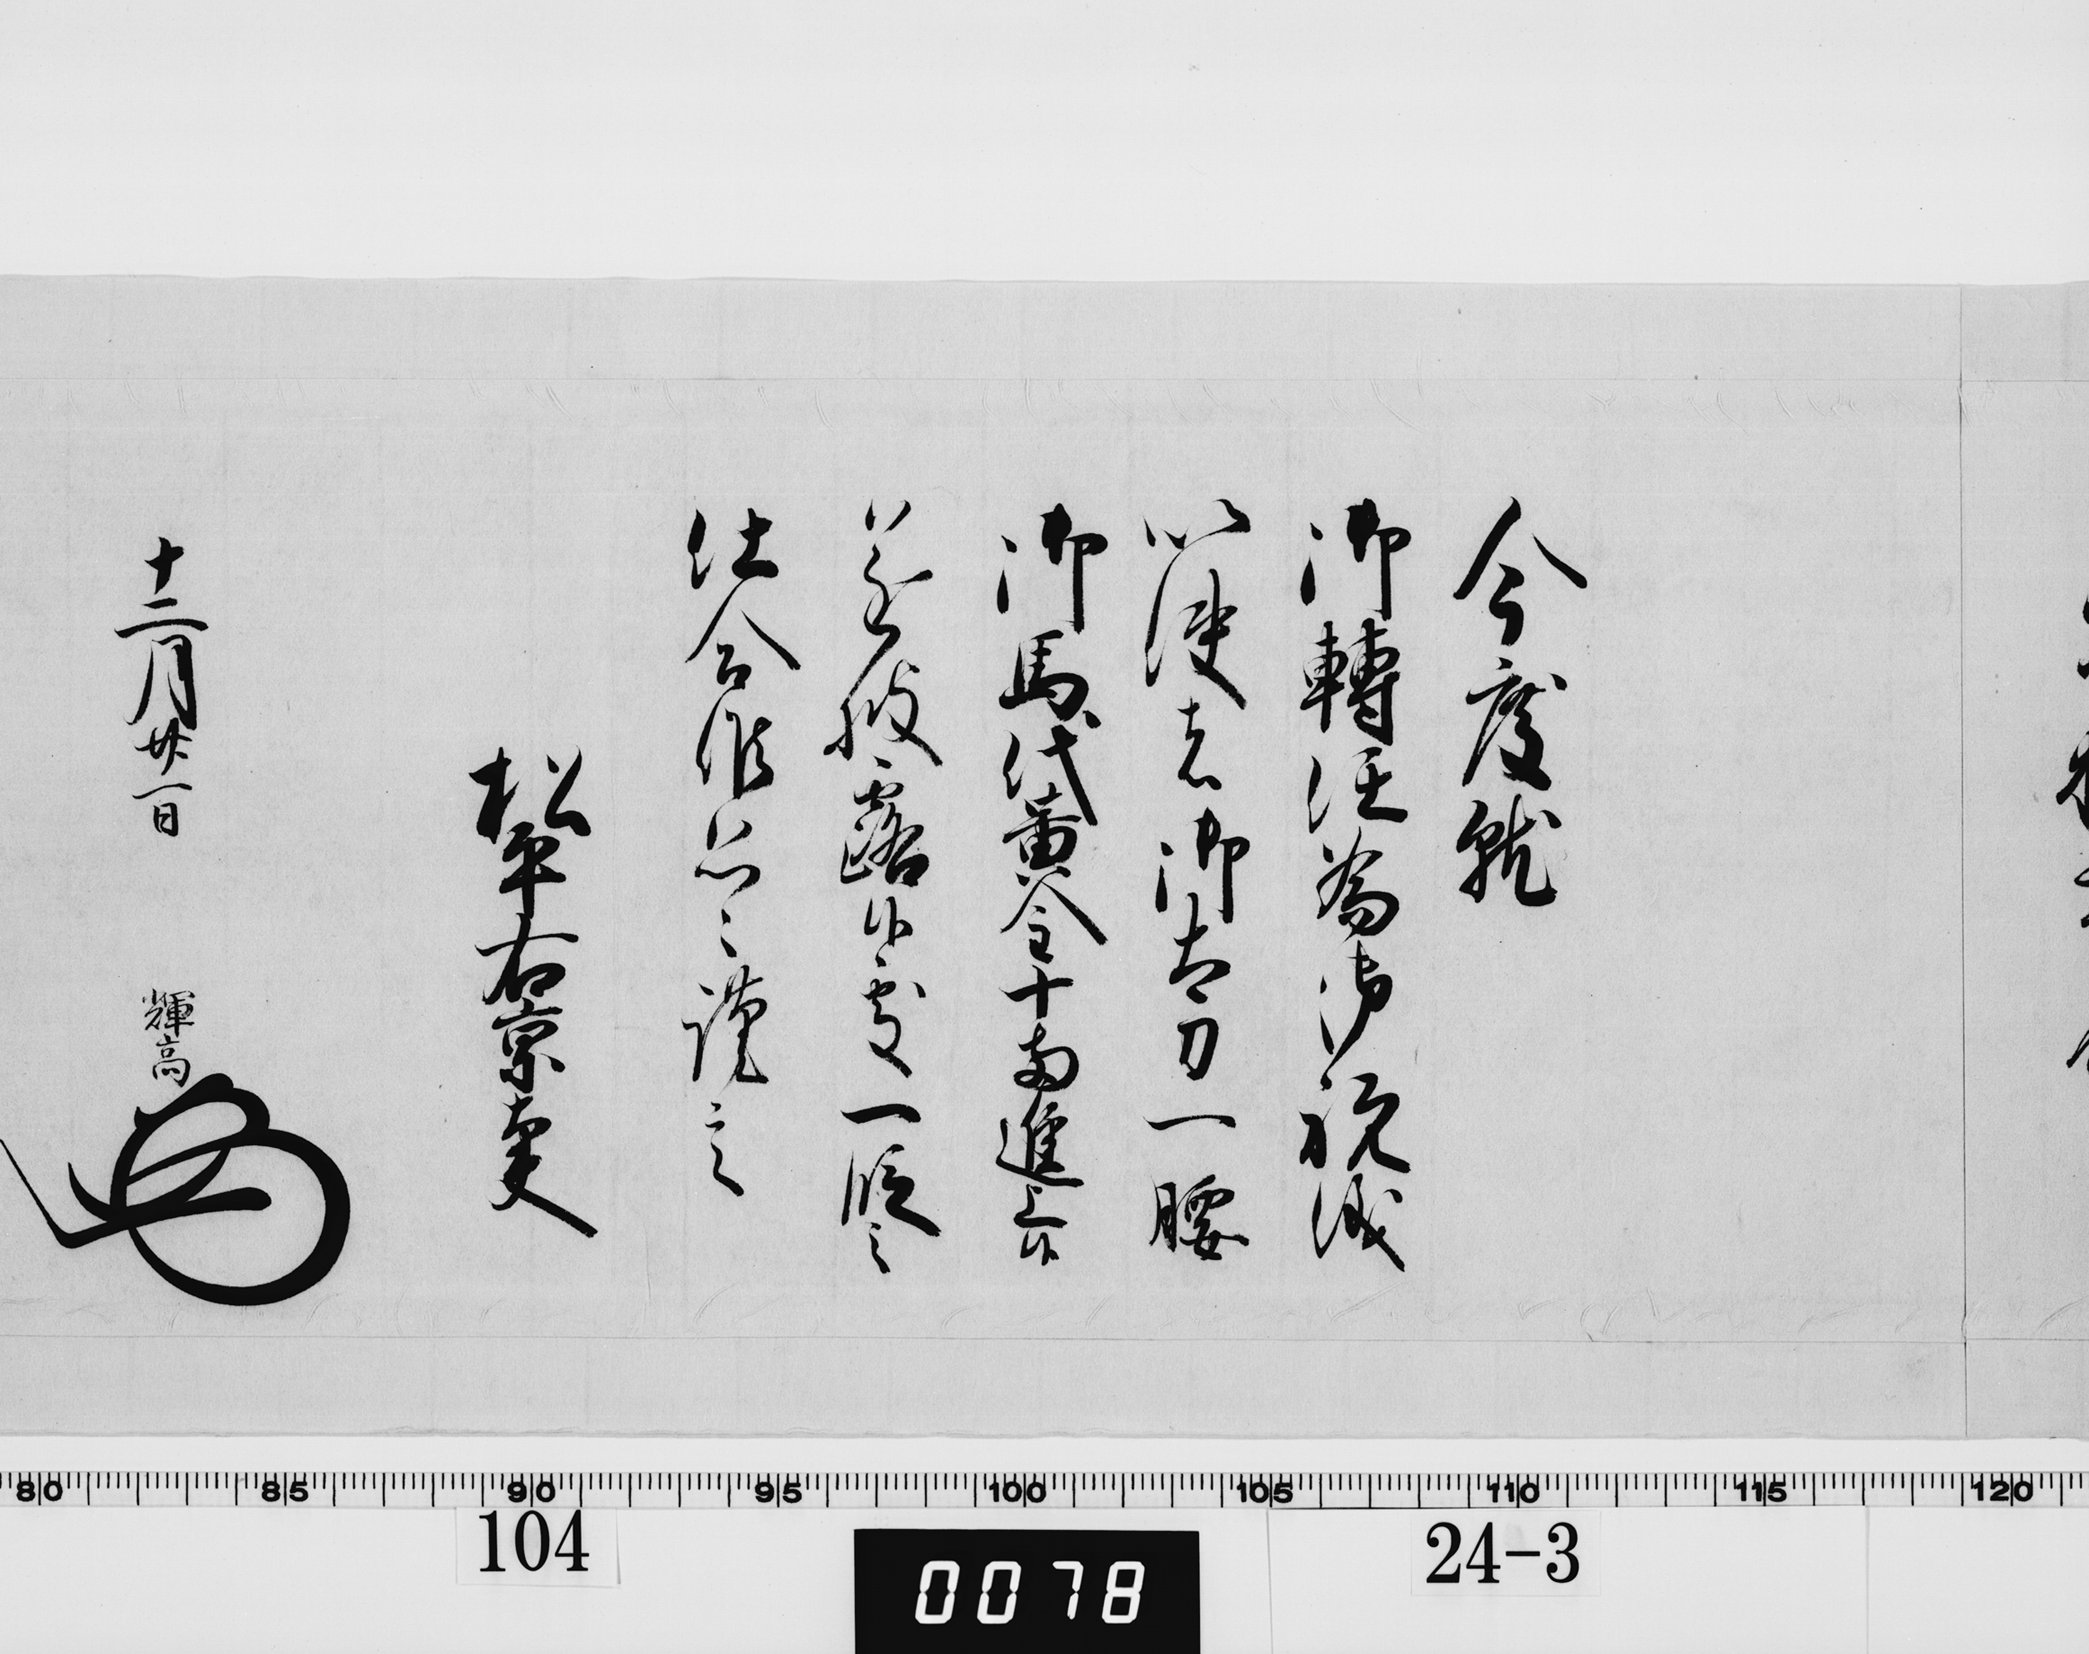 今度就
御轉任為御祝儀
以使者御太刀一腰
御馬代黄金十両進上候
遂披露候處一段之
仕合候恐々謹言
松平右京大夫
十二月廿一日
輝高
80 85 90 95 100 105 110 115 120
104
0078
24-3